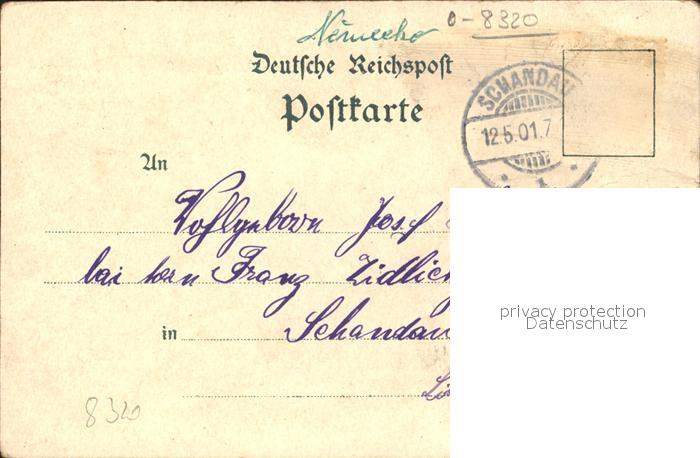 Německo 0-8320
Deutsche Reichspost
Postkarte
SCHANDAU
12.5.01.7
An
Wohlgeborn Josef
bei Herrn Franz Zidlick
in Schandau
8320
privacy protection
Datenschutz